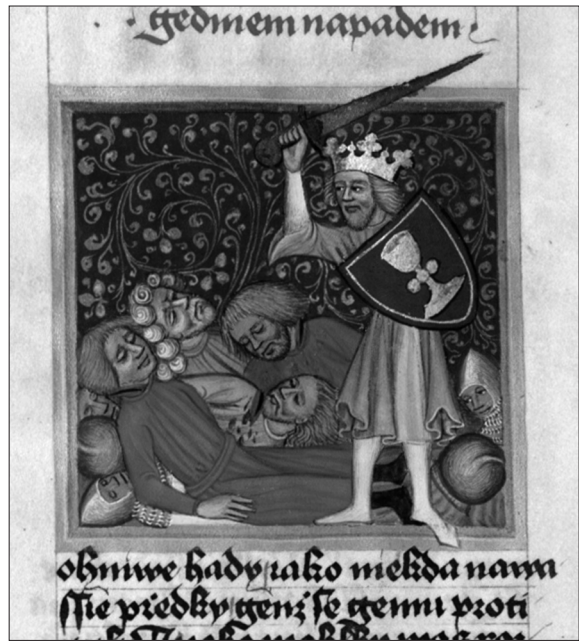 gedniem napadem
ohniwe hady yako niekda nawa
ssie předky genž se gemu proti